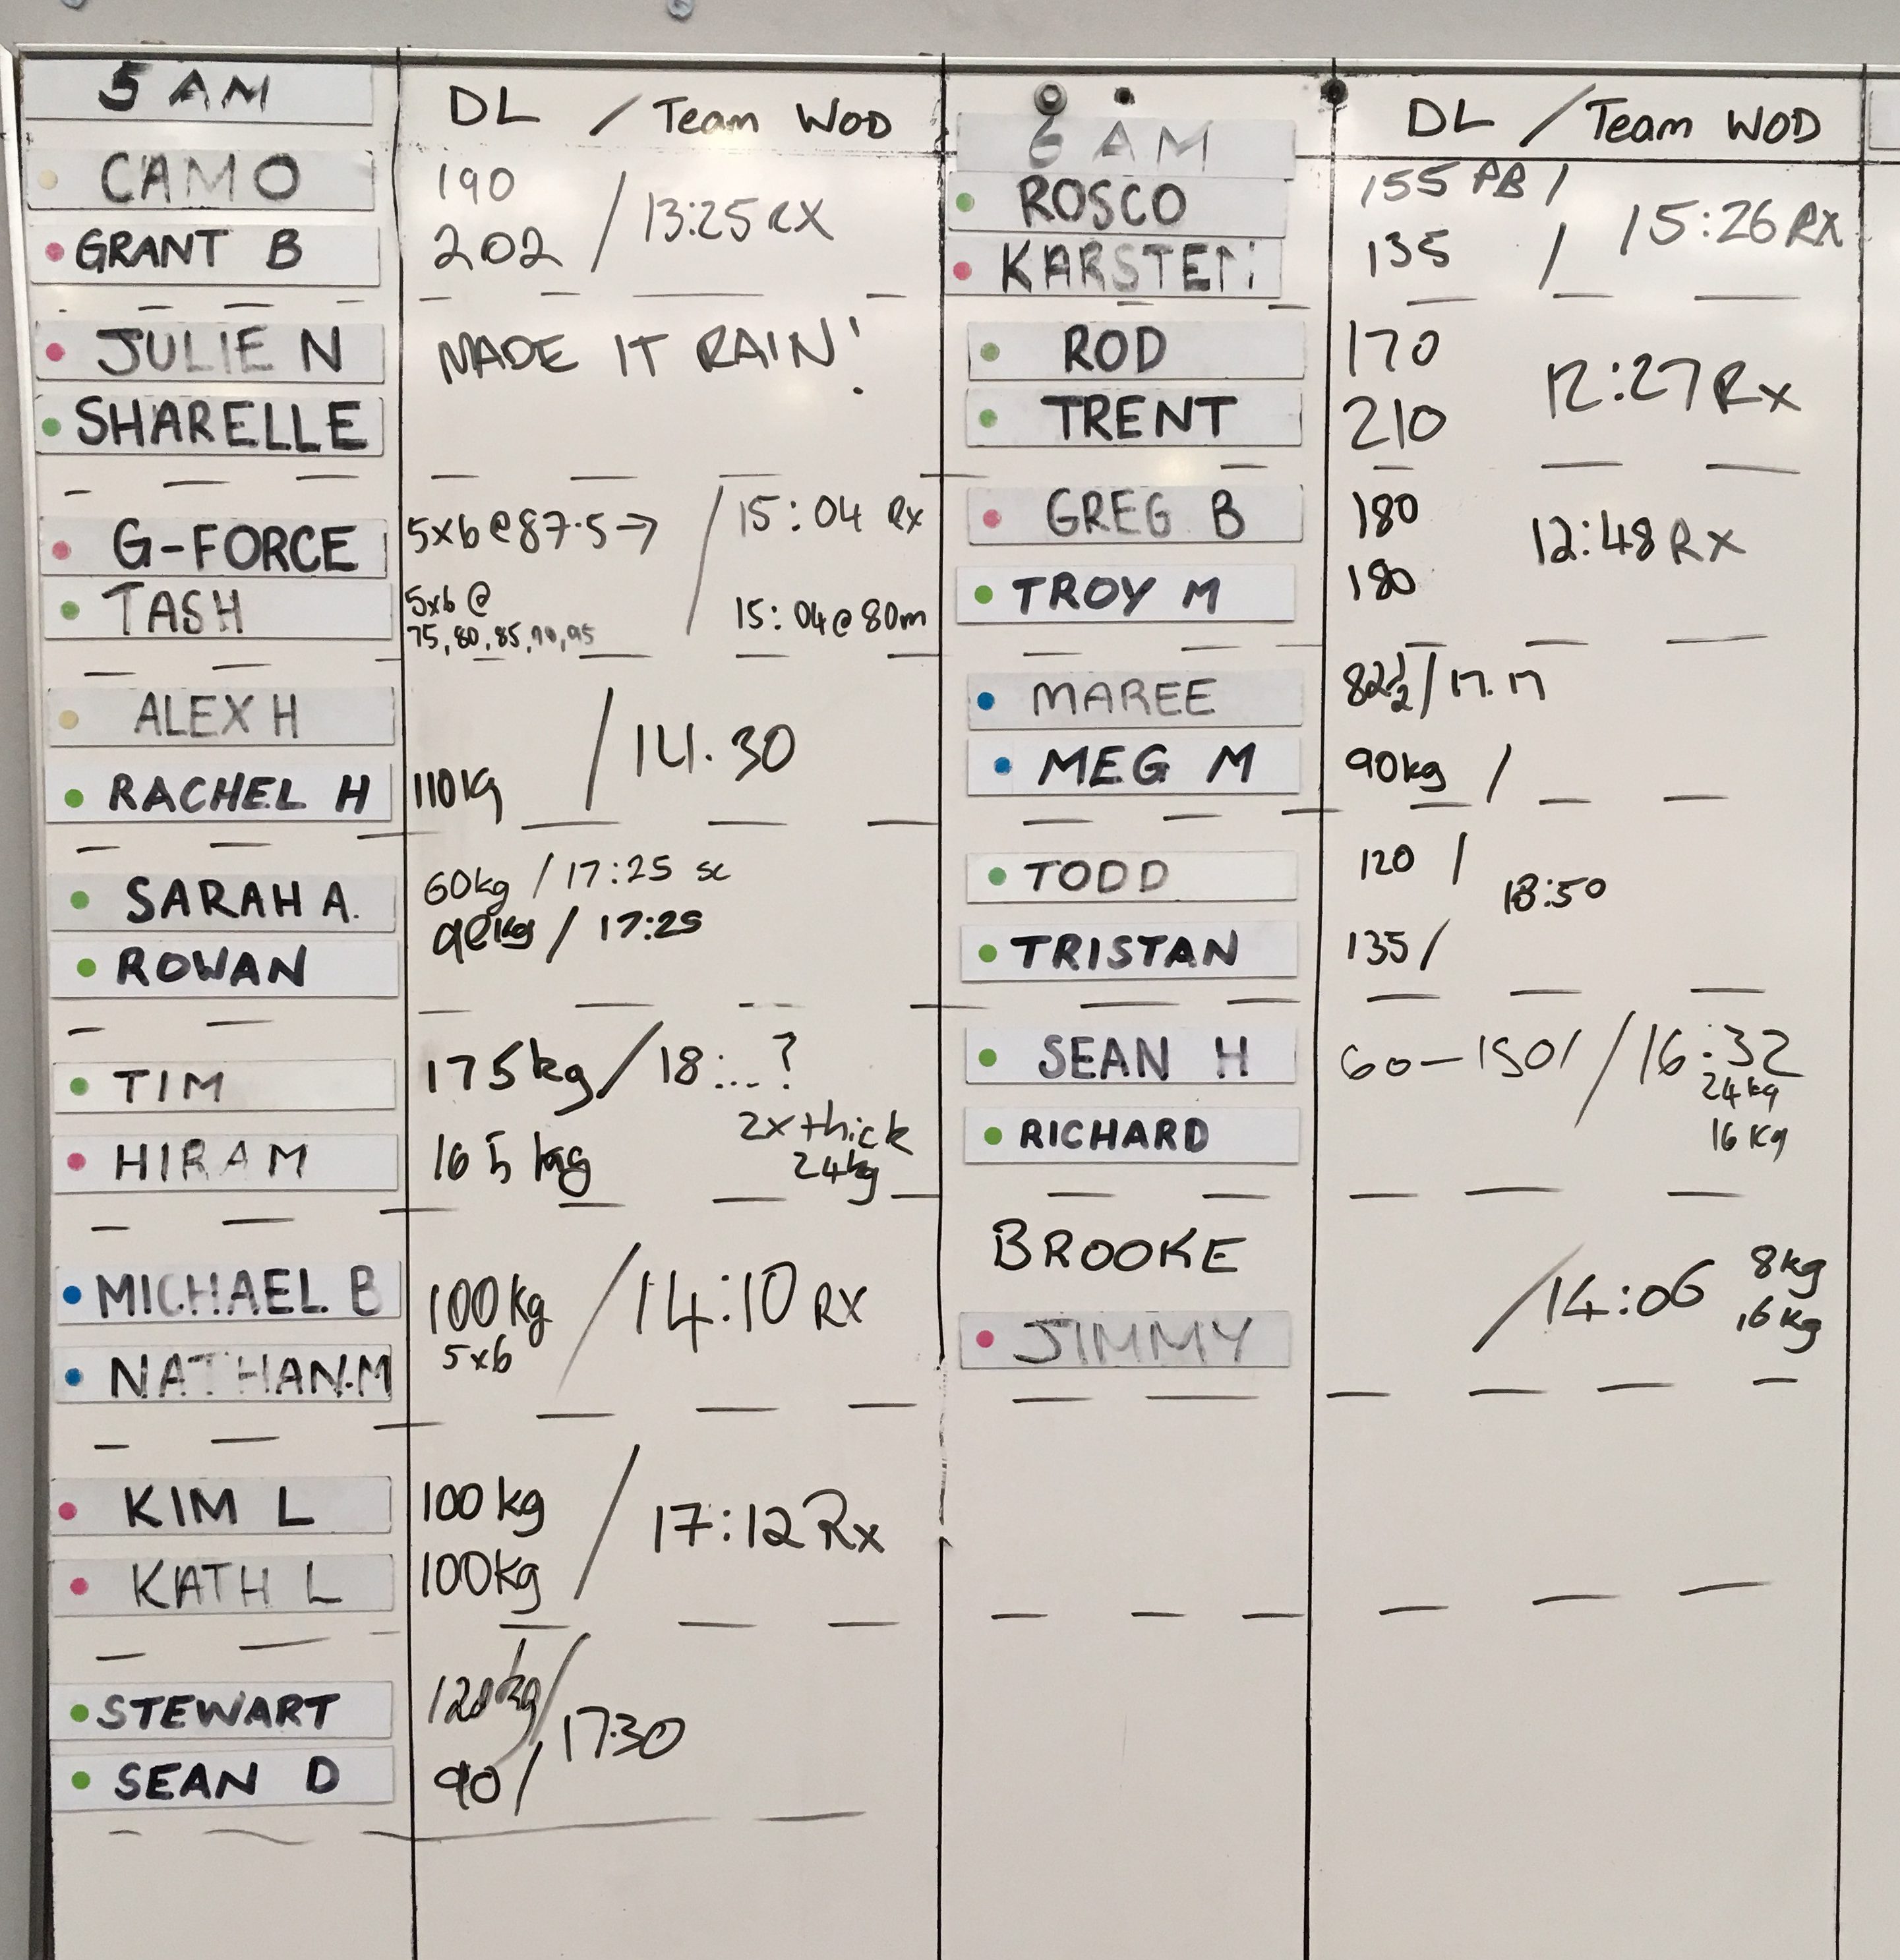 5 AM
DL / Team WOD
CAMO
190
GRANT B
202 / 13:25 RX
JULIE N
MADE IT RAIN!
SHARELLE
G-FORCE
5x6@87.5→ / 15:04 Rx
TASH
5x6@
75,80,85,90,95
15:04@80m
ALEX H
/ 14.30
RACHEL H
110kg
SARAH A.
60kg / 17:25 sc
ROWAN
90kg / 17:25
TIM
175kg / 18:...?
HIRAM
165 kg
2x thick
24kg
MICHAEL B
100kg / 14:10 RX
5x6
NATHAN.M
KIM L
100kg / 17:12 Rx
KATH L
100kg
STEWART
120kg / 17.30
SEAN D
90 /
6 AM
DL / Team WOD
ROSCO
155 PB /
15:26 Rx
KARSTEN
135 /
ROD
170
12:27 Rx
TRENT
210
GREG B
180
12:48 Rx
TROY M
180
MAREE
82½ / 17.17
MEG M
90kg /
TODD
120 /
18:50
TRISTAN
135 /
SEAN H
60-150 / / 16:32
24kg
RICHARD
16kg
BROOKE
/ 14:06 8kg
JIMMY
16kg